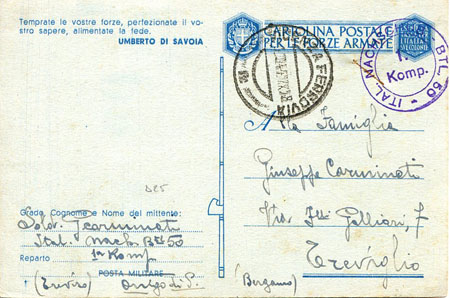 Temprate le vostre forze, perfezionate il vo-
stro sapere, alimentate la fede.
UMBERTO DI SAVOIA
CARTOLINA POSTALE
PER LE FORZE ARMATE
FERROVIA
ITAL. NACH. BTL. 50
1.
Komp.
Alla Famiglia
Giuseppe Carminati
Via F.lli Galliari, 7
Treviglio
(Bergamo)
Grado, Cognome e Nome del mittente:
Sold. Carminati
Ital. Nach. Btl 50
Reparto 1a Komp.
POSTA MILITARE